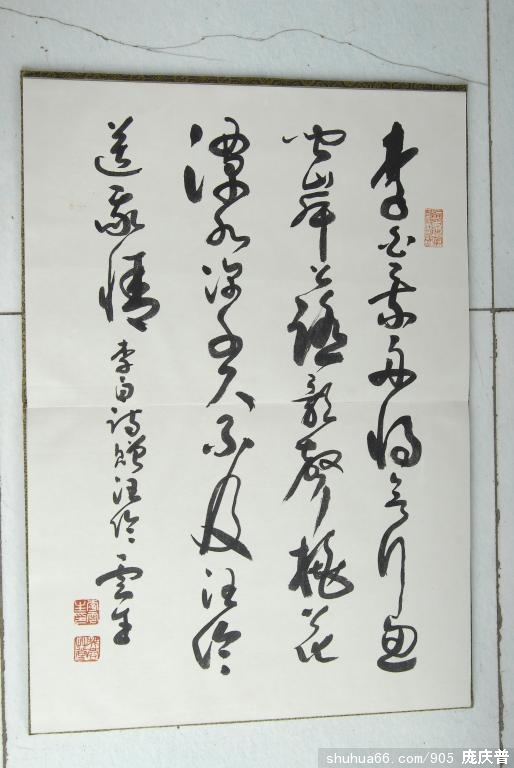 李白乘舟将欲行忽
闻岸上踏歌声桃花
潭水深千尺不及汪伦
送我情 李白诗赠汪伦 云生
shuhua66.com/905 庞庆普